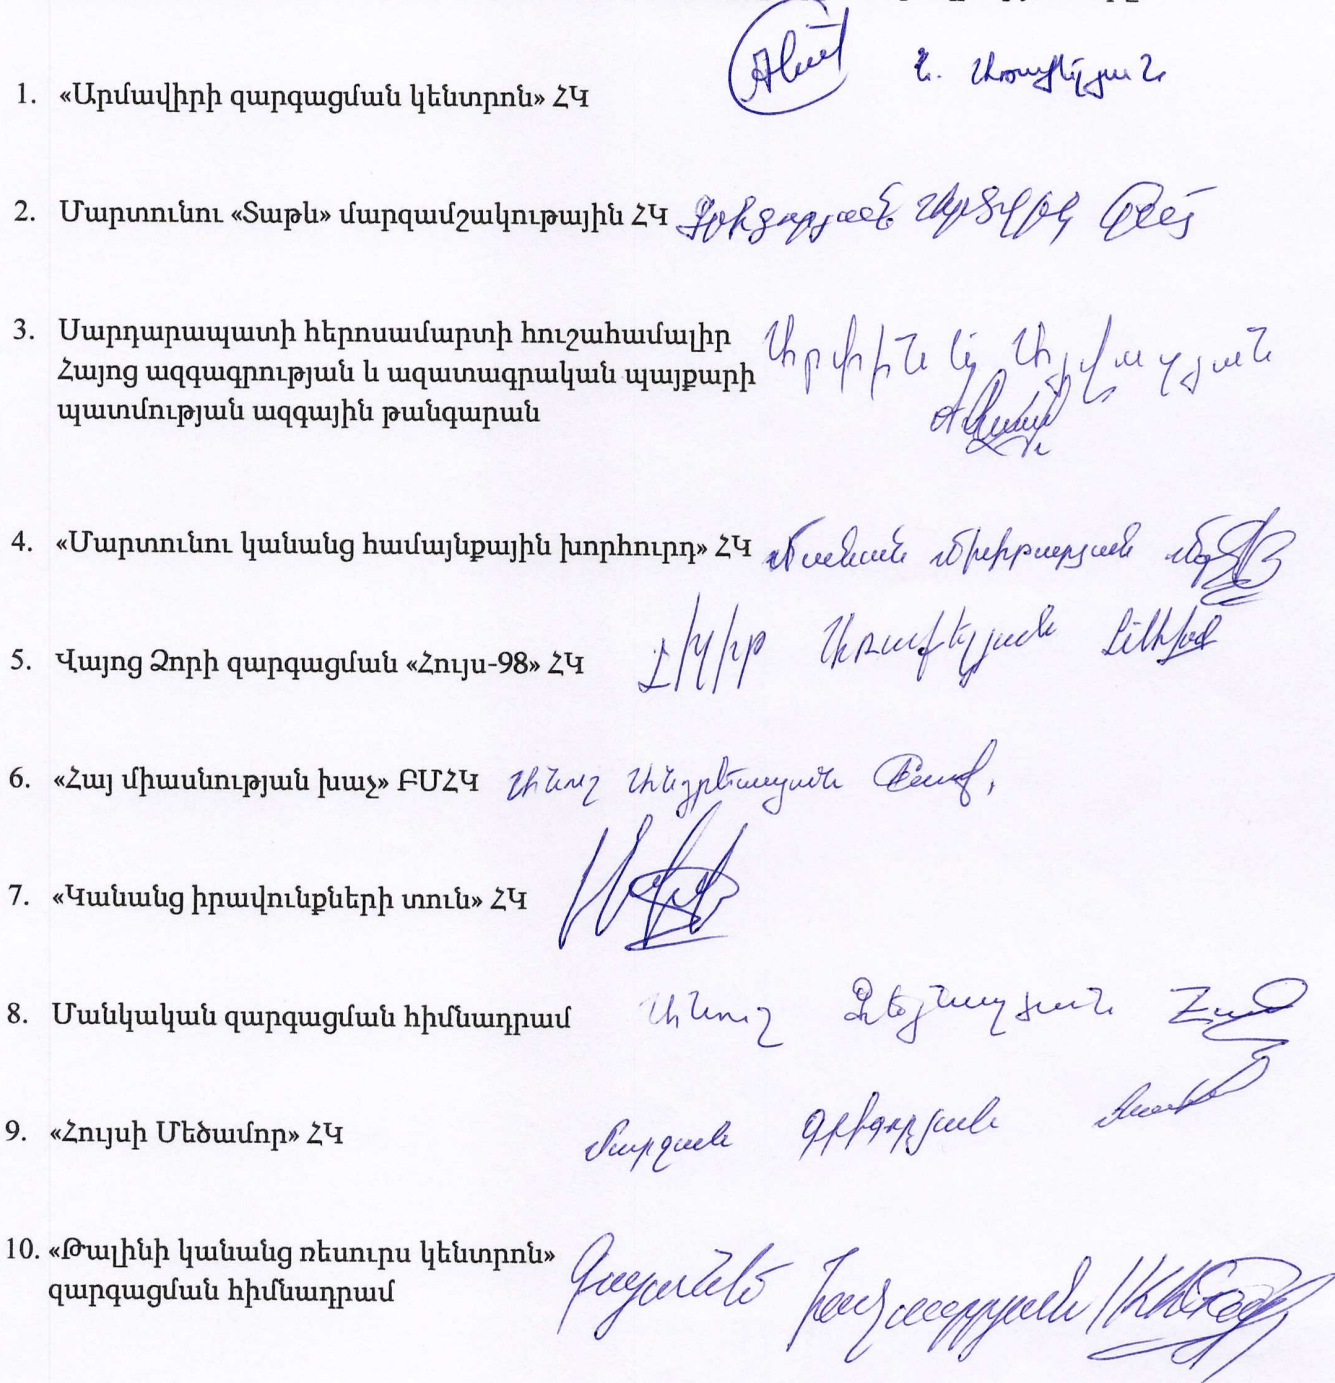 Ն. Առաքելյան
1. «Արմավիրի զարգացման կենտրոն» ՀԿ
2. Մարտունու «Տաթև» մարզամշակութային ՀԿ
3. Սարդարապատի հերոսամարտի հուշահամալիր
Հայոց ազգագրության և ազատագրական պայքարի
պատմության ազգային թանգարան
Արփինե Այվազյան
4. «Մարտունու կանանց համայնքային խորհուրդ» ՀԿ Անահան Մխիթարյան
5. Վայոց Ձորի զարգացման «Հույս-98» ՀԿ Լիլիթ Առաքելյան
6. «Հայ միասնության խաչ» ԲՄՀԿ Անուշ Անդրեասյան
7. «Կանանց իրավունքների տուն» ՀԿ
8. Մանկական զարգացման հիմնադրամ Անուշ Զեյնալյան
9. «Հույսի Մեծամոր» ՀԿ Մարգան Գրիգորյան
10. «Թալինի կանանց ռեսուրս կենտրոն»
զարգացման հիմնադրամ Գայանե Խաչատրյան